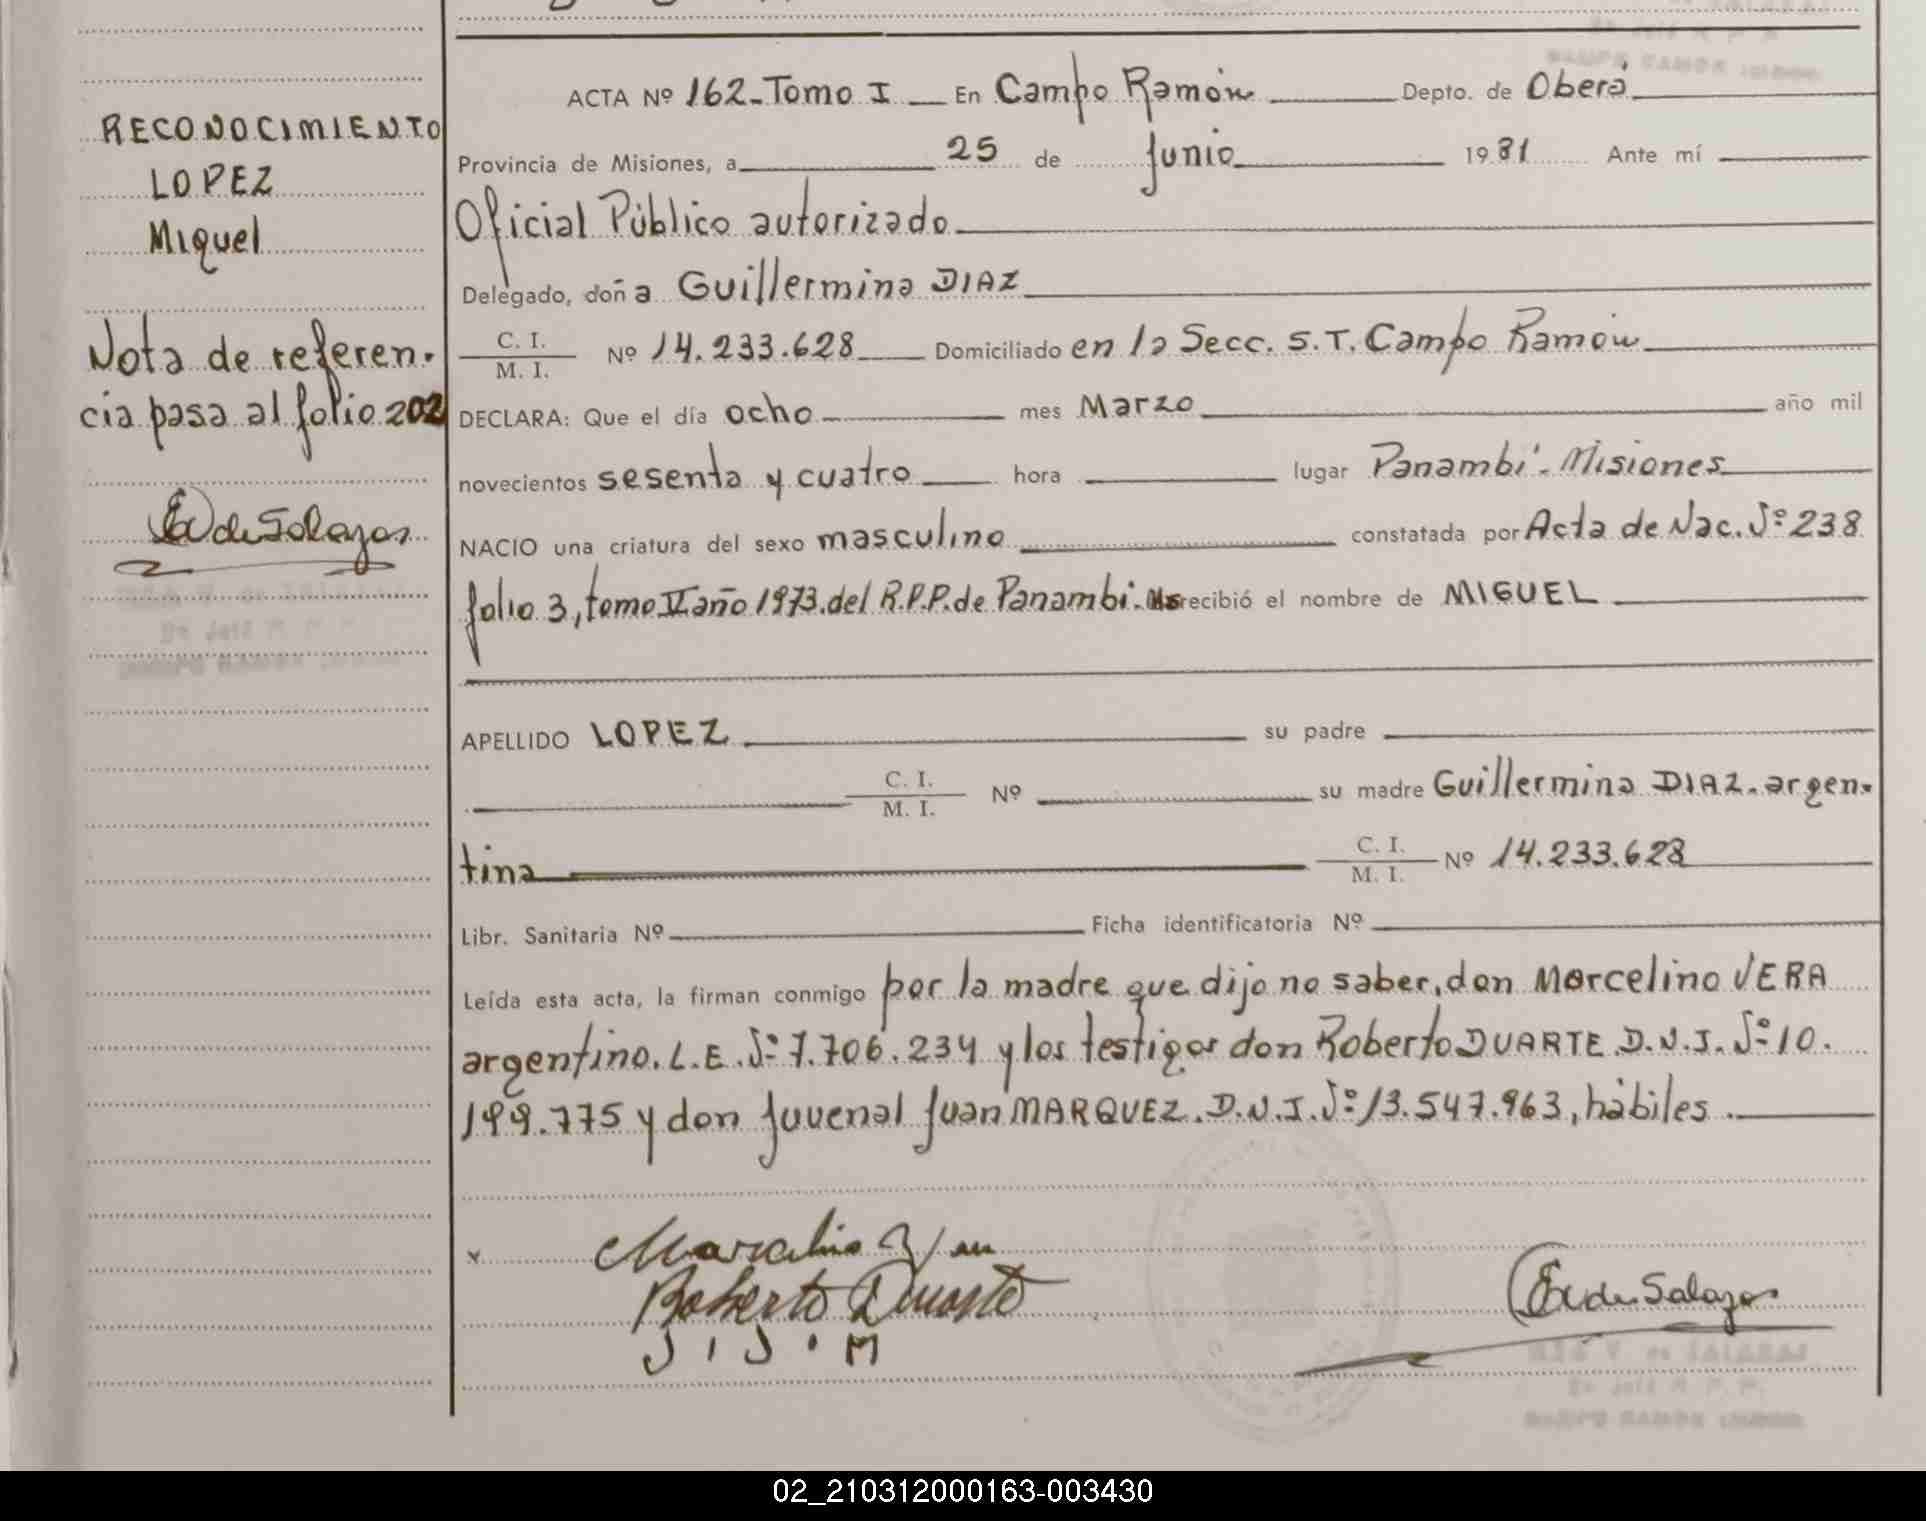 RECONOCIMIENTO
LOPEZ
Miguel
Nota de referen-
cia pasa al folio 202
ACTA Nº 162-Tomo I En Campo Ramón Depto. de Oberá
Provincia de Misiones, a 25 de Junio 1981 Ante mí
Oficial Público autorizado
Delegado, doña Guillermina DIAZ
C. I.
M. I. Nº 14.233.628 Domiciliado en la Secc. S.T. Campo Ramón
DECLARA: Que el día ocho mes Marzo año mil
novecientos sesenta y cuatro hora lugar Panambí-Misiones
NACIO una criatura del sexo masculino constatada por Acta de Nac. Nº 238
folio 3, tomo II año 1973 del R.P.P. de Panambí. recibió el nombre de MIGUEL
APELLIDO LOPEZ su padre
C. I.
M. I. Nº su madre Guillermina DIAZ. argen-
tina C. I.
M. I. Nº 14.233.628
Libr. Sanitaria Nº Ficha identificatoria Nº
Leída esta acta, la firman conmigo por la madre que dijo no saber, don Marcelino VERA
argentino. L.E. Nº 7.706.234 y los testigos don Roberto DUARTE. D.N.I. Nº 10.
199.775 y don Juvenal Juan MARQUEZ. D.N.I. Nº 13.547.963, hábiles.
Roberto Duarte
J. J. M
02_210312000163-003430